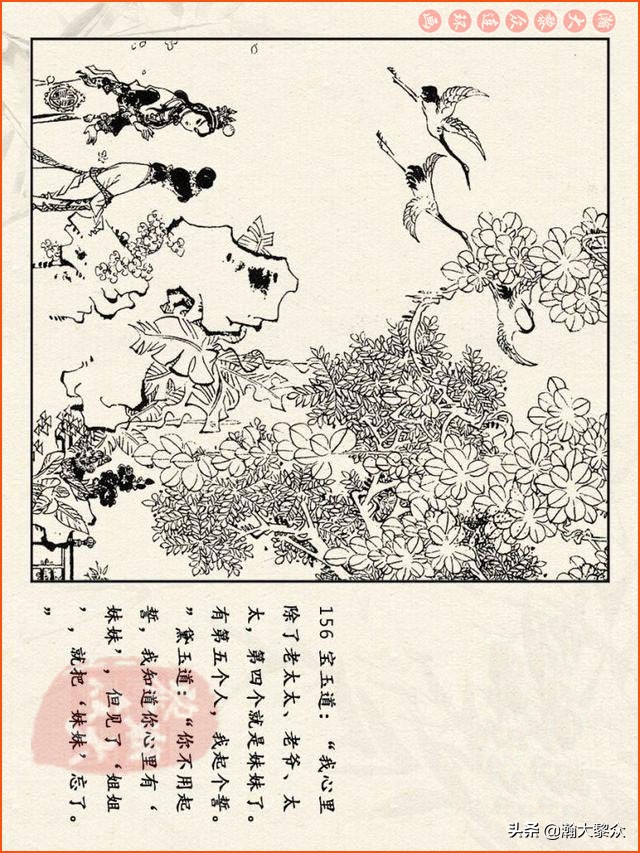 瀚大黎众连环画
156 宝玉道：“我心里
除了老太太、老爷、太
太，第四个就是妹妹了。
有第五个人，我起个誓。
”黛玉道：“你不用起
誓，我知道你心里有‘
妹妹’，但见了‘姐姐
’，就把‘妹妹’忘了。
”
头条 @瀚大黎众